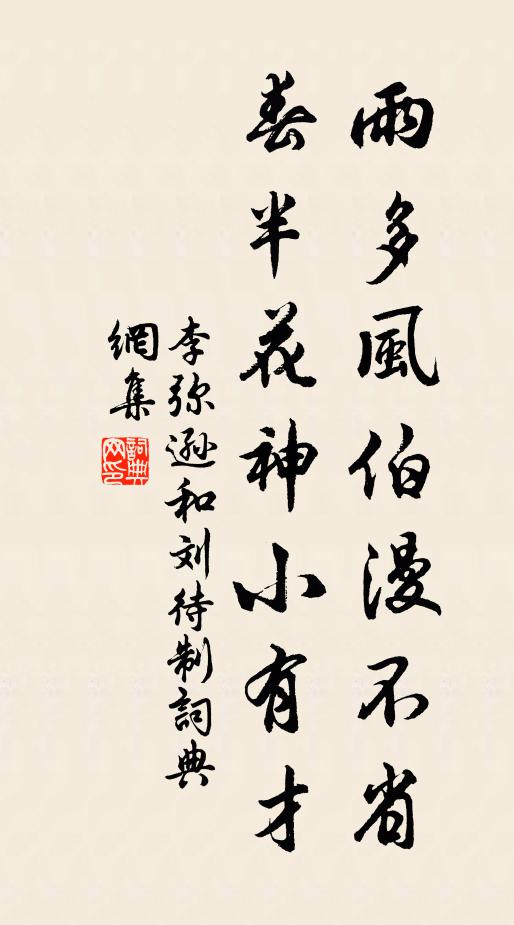 雨多風伯漫不省
春半花神小有才
李弥遜和刘待制詞典
網集
詞典網印